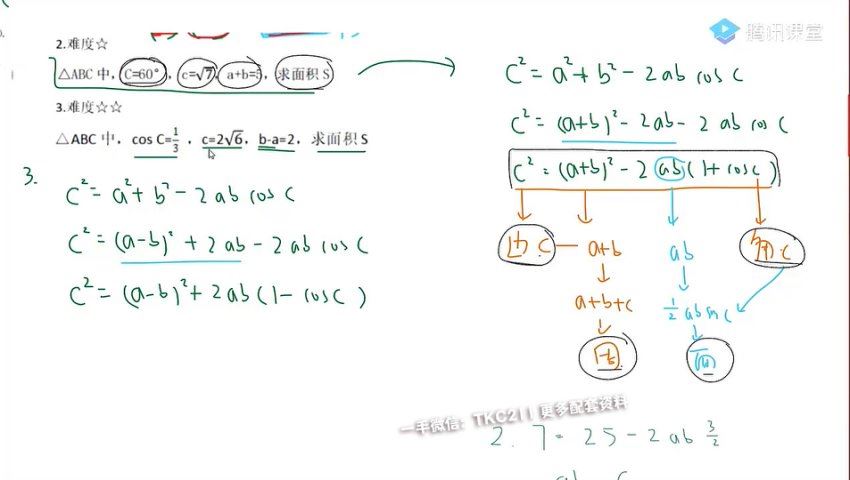 腾讯课堂
2.难度☆
△ABC 中，C=60°，c=√7，a+b=5，求面积 S
3.难度☆☆
△ABC 中，cos C=1/3，c=2√6，b-a=2，求面积 S
3.
c² = a² + b² - 2ab cos C
c² = (a-b)² + 2ab - 2ab cos C
c² = (a-b)² + 2ab(1 - cos C)
c² = a² + b² - 2ab cos C
c² = (a+b)² - 2ab - 2ab cos C
c² = (a+b)² - 2ab(1 + cos C)
边 C a+b ab 角 C
a+b+c ½ab sin C
一手微信：TKC211 更多配套资料
2. 7 = 25 - 2ab 3/2